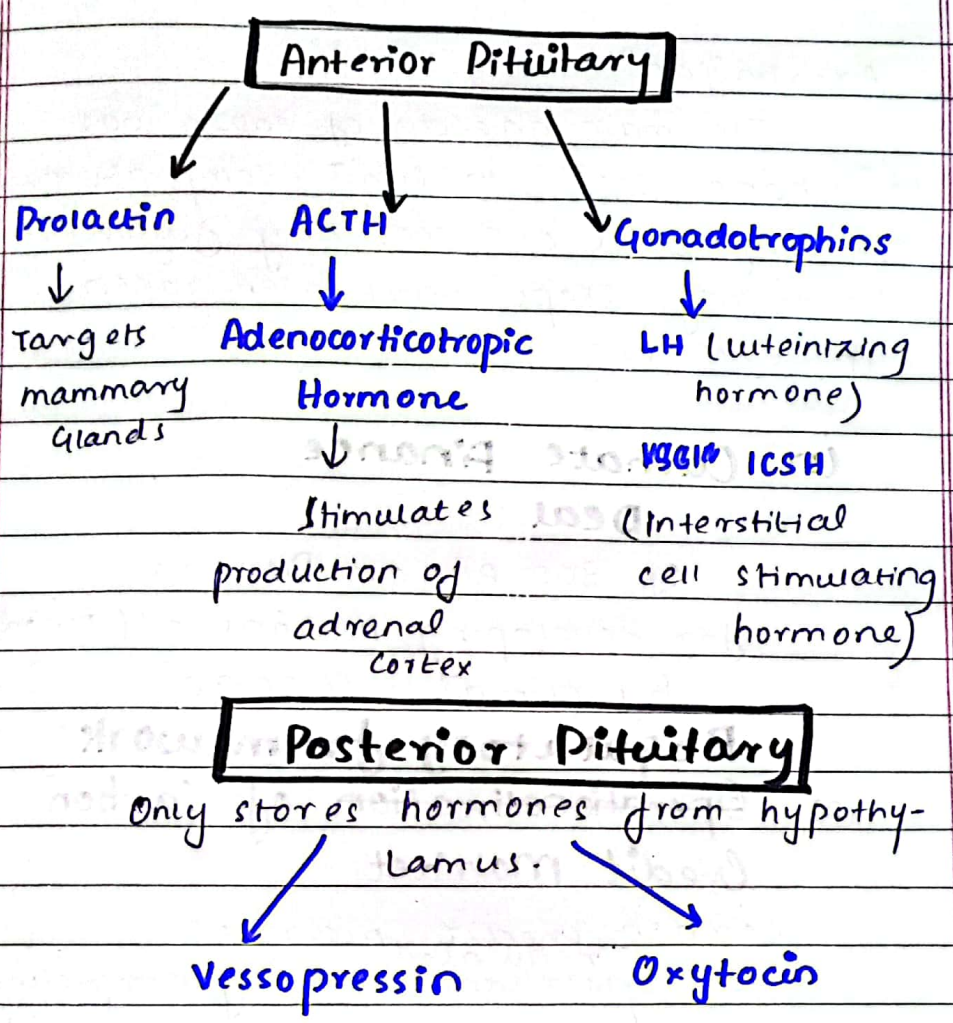 Anterior Pituitary
Prolactin
Targets
mammary
Glands
ACTH
Adenocorticotropic
Hormone
Stimulates
production of
adrenal
Cortex
Gonadotrophins
LH (luteinizing
hormone)
ICSH
(Interstitial
cell stimulating
hormone)
Posterior Pituitary
Only stores hormones from hypothy-
Lamus.
Vessopressin
Oxytocin